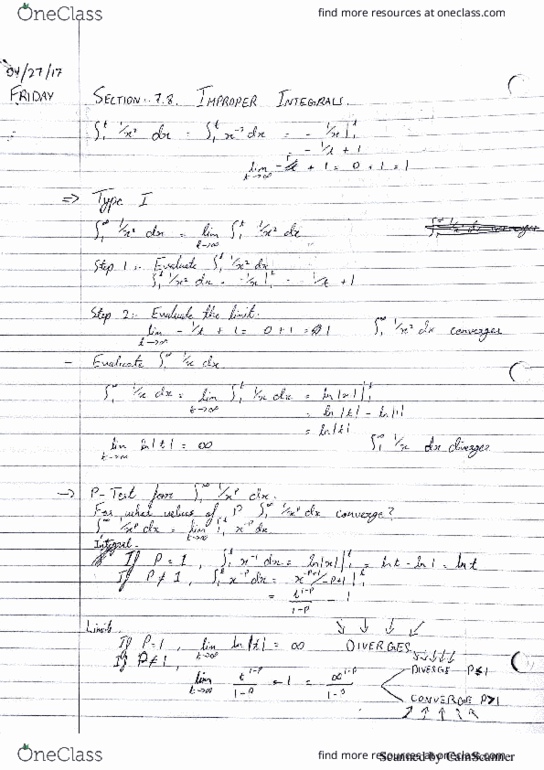 OneClass
find more resources at oneclass.com
04/27/17
FRIDAY
SECTION. 7.8. IMPROPER INTEGRALS.
∫₁ᵗ 1/x² dx = ∫₁ᵗ x⁻² dx = - 1/x |₁ᵗ
= - 1/t + 1
lim t→∞ - 1/t + 1 = 0 + 1 = 1
=> Type I
∫₁^∞ 1/x² dx = lim t→∞ ∫₁ᵗ 1/x² dx
Step 1:. Evaluate ∫₁ᵗ 1/x² dx
∫₁ᵗ 1/x² dx = - 1/x |₁ᵗ = - 1/t + 1
Step 2:. Evaluate the limit.
lim t→∞ - 1/t + 1 = 0 + 1 = 1 ∫₁^∞ 1/x² dx converges
- Evaluate ∫₁^∞ 1/x dx.
∫₁^∞ 1/x dx = lim t→∞ ∫₁ᵗ 1/x dx = ln|x| |₁ᵗ
= ln|t| - ln|1|
= ln|t|
lim t→∞ ln|t| = ∞ ∫₁^∞ 1/x dx diverges
-> P-Test form ∫₁^∞ 1/xᵖ dx.
For what values of P ∫₁^∞ 1/xᵖ dx converge?
∫₁^∞ 1/xᵖ dx = lim t→∞ ∫₁ᵗ x⁻ᵖ dx
Integral.
If P = 1, ∫₁ᵗ x⁻¹ dx = ln|x| |₁ᵗ = ln t - ln 1 = ln t
If P ≠ 1, ∫₁ᵗ x⁻ᵖ dx = x⁻ᵖ⁺¹/-p+1 |₁ᵗ
= t¹⁻ᵖ/1-p - 1
Limit.
If P = 1, lim t→∞ ln|t| = ∞ DIVERGES
If P ≠ 1,
lim t→∞ t¹⁻ᵖ/1-p - 1 = ∞¹⁻ᵖ/1-p
DIVERGE P≤1
CONVERGE P>1
OneClass
find more resources at oneclass.com
Scanned by CamScanner